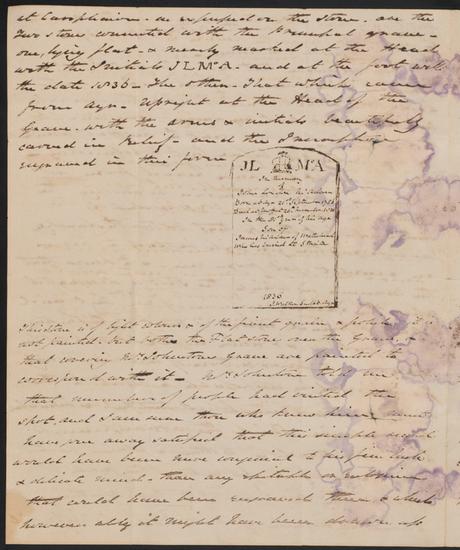 at Camphinion. as exposed on the Stone. are the
Two stone connected with the Principal grave -
one, lying flat - & neatly marked at the Head
with the Initials J L McA - and at the foot with
the date 1836 - The other - That which came
from Ayr - Upright at the Head of the
Grave. with the arms & initials beautifully
carved in Relief - and the Inscription
engraved in this form
JL McA
In Memory
of
John Loudon McAdam
Born at Ayr 21st September 1756
In the 81st year of his age
Son of
James McAdam of Waterhead
who lies buried at
1836
This stone is of light colour & of the finest grain & polish it is
not painted. but both the Flat stone over the Grave &
that covering Mr Johnstones Grave are painted to
correspond with it - Mr Johnstone told me
that numbers of people had visited the
spot, and I am sure those who knew him
have gone away satisfied that this simple record
would have been more congenial to his
& delicate mind - than any
that could have been engraved there & which
however ably it might have been drawn up